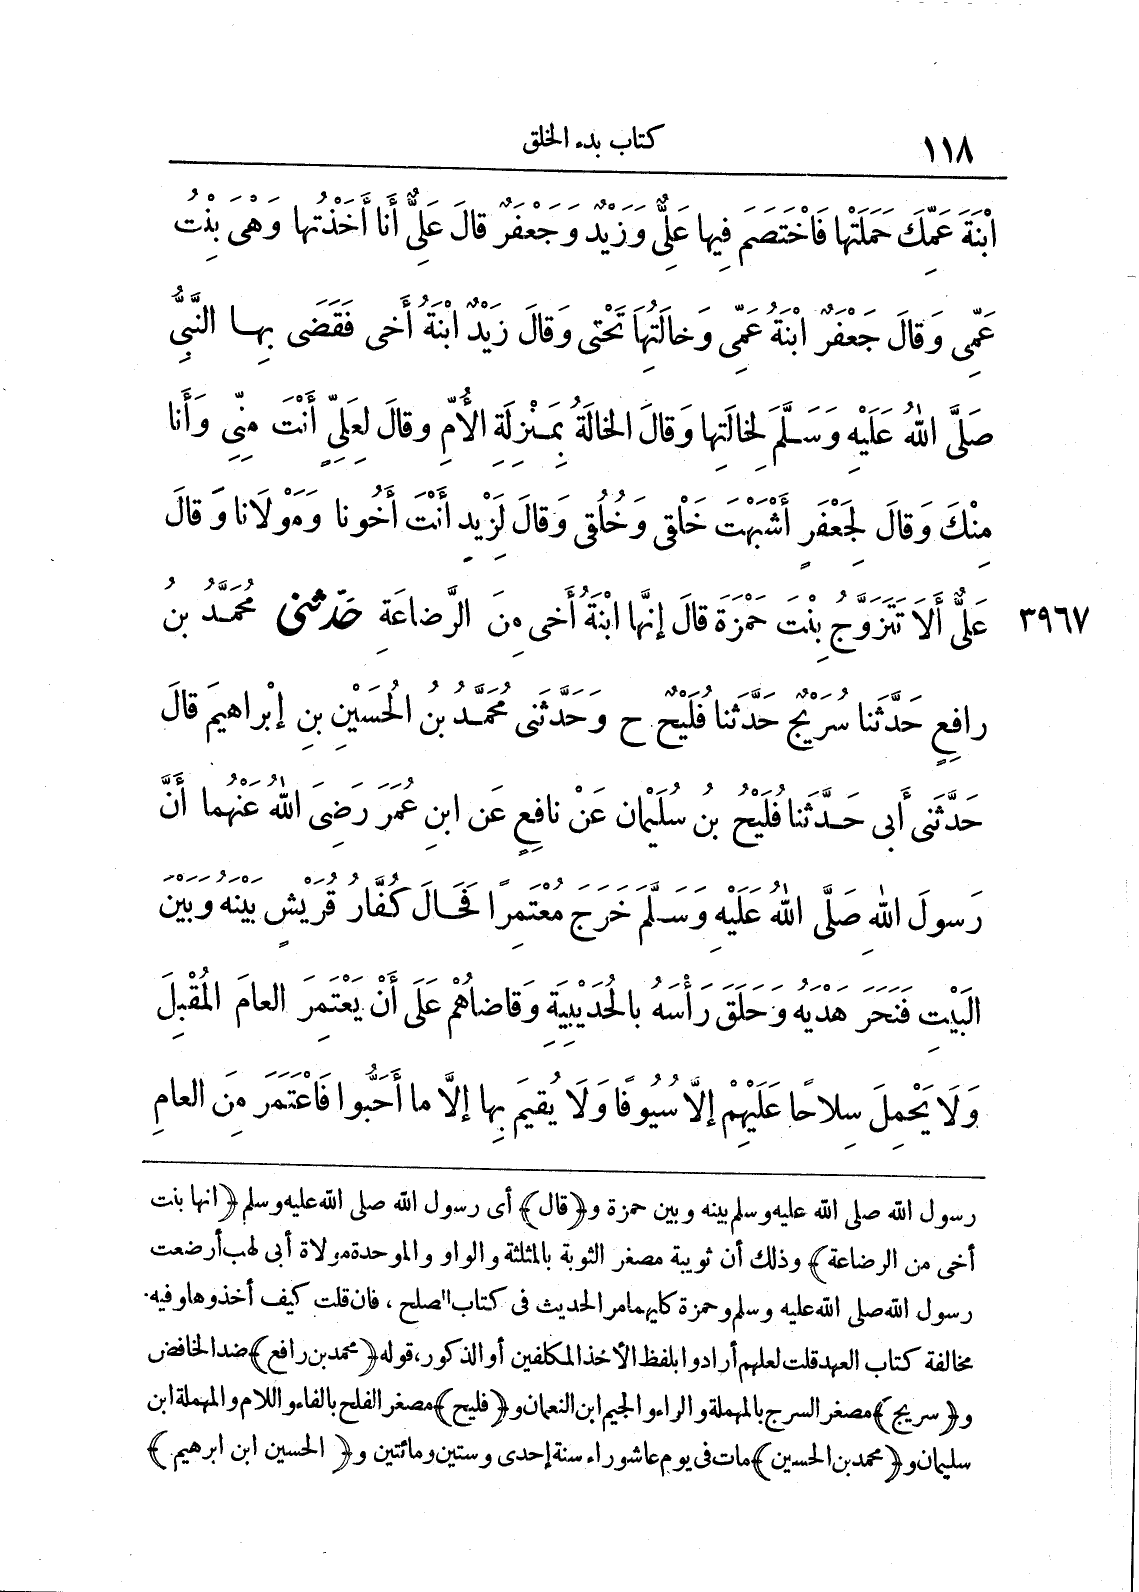 ١١٨
كتاب بدء الخلق
ابْنَةَ عَمِّكِ حَمَلَتْها فَاخْتَصَمَ فِيها عَلِيٌّ وَزَيْدٌ وَجَعْفَرٌ قالَ عَلِيٌّ أَنا أَخَذْتُها وَهْىَ بِنْتُ
عَمِّى وَقالَ جَعْفَرٌ ابْنَةُ عَمِّى وَخالَتُهَا تَحْتِى وَقالَ زَيْدٌ ابْنَةُ أَخِى فَقَضَى بِها النَّبِيُّ
صَلَّى اللهُ عَلَيْهِ وَسَلَّمَ لِخالَتِها وَقالَ الخالَةُ بِمَنْزِلَةِ الأُمِّ وقالَ لِعَلِيٍّ أَنْتَ مِنِّى وَأَنا
مِنْكَ وَقالَ لِجَعْفَرٍ أَشْبَهْتَ خَلْقِى وَخُلُقِى وَقالَ لِزَيْدٍ أَنْتَ أَخُونا وَمَوْلَانا وَقالَ
عَلِيٌّ أَلَا تَتَزَوَّجُ بِنْتَ حَمْزَةَ قالَ إِنَّها ابْنَةُ أَخِى مِنَ الرَّضاعَةِ حَدَّثنى مُحَمَّدُ بنُ
٣٩٦٧
رافِعٍ حَدَّثَنا سُرَيْجٌ حَدَّثَنا فُلَيْحٌ ح وَحَدَّثَنى مُحَمَّدُ بنُ الحُسَيْنِ بنِ إِبْراهِيمَ قالَ
حَدَّثَنى أَبِى حَدَّثَنا فُلَيْحُ بنُ سُلَيْمانَ عَنْ نافِعٍ عَنِ ابنِ عُمَرَ رَضِىَ اللهُ عَنْهُما أَنَّ
رَسولَ اللهِ صَلَّى اللهُ عَلَيْهِ وَسَلَّمَ خَرَجَ مُعْتَمِرًا فَحَالَ كُفَّارُ قُرَيْشٍ بَيْنَهُ وَبَيْنَ
البَيْتِ فَنَحَرَ هَدْيَهُ وَحَلَقَ رَأْسَهُ بالحُدَيْبِيَةِ وَقاضاهُمْ عَلَى أَنْ يَعْتَمِرَ العامَ المُقْبِلَ
وَلَا يَحْمِلَ سِلاحًا عَلَيْهِمْ إِلَّا سُيُوفًا وَلَا يُقِيمَ بِها إِلَّا ما أَحَبُّوا فَاعْتَمَرَ مِنَ العامِ
رسول الله صلى الله عليه وسلم بينه وبين حمزة و﴿قال﴾ أى رسول الله صلى الله عليه وسلم ﴿انها بنت
أخى من الرضاعة﴾ وذلك أن ثويبة مصغر الثوبة بالمثلثة والواو والموحدة مولاة أبى لهب أرضعت
رسول الله صلى الله عليه وسلم وحمزة كليهما مر الحديث فى كتاب الصلح ، فان قلت كيف أخذوها وفيه
مخالفة كتاب العهد قلت لعلهم أرادوا بلفظ الأخذ المكلفين أو الذكور، قوله ﴿محمد بن رافع﴾ ضد الخافض
و﴿سريج﴾ مصغر السرج بالمهملة والراء والجيم ابن النعمان و﴿فليح﴾ مصغر الفلح بالفاء واللام والمهملة ابن
سليمان و﴿محمد بن الحسين﴾ مات فى يوم عاشوراء سنة إحدى وستين ومائتين و﴿الحسين ابن ابرهيم﴾